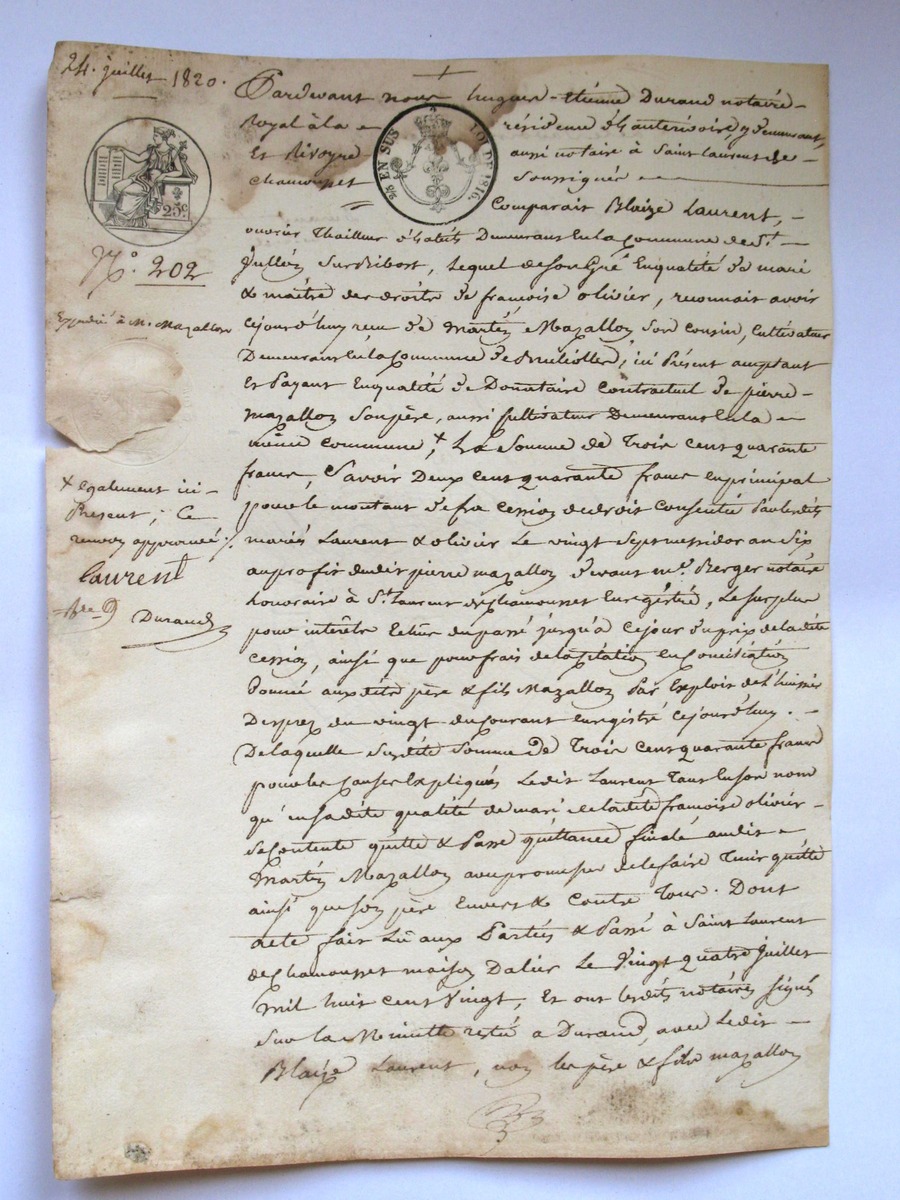 24. juillet 1820.
Pardevant nous hugues-étienne Durand notaire-
Royal à la résidence d'hauterivoire, y demeurant,
Et Rivoyre aussi notaire à Saint Laurent de-
chamousset Soussignés
EN SUS
LOI DE 1816.
25c
N°. 202
Comparait Blaize Laurent,
ouvrier Thailleur d'habits Demeurant En la Commune de St.
Jullien Sur Bibort, Lequel de son Gré En qualité de mari
& maitre des droits de francoise olivier, reconnait avoir
cejourd'huy recu de martin Mazallon son cousin, Cultivateur
Expedié à M. Mazallon
Demeurant En la Commune de Brulliolles, ici Présent acceptant
Et Payant En qualité de Donataire Contractuel de pierre-
mazallon Son père, aussi Cultivateur Demeurant En la
même commune +, La Somme de Trois cent quarante
francs, Savoir Deux cent quarante francs en principal
pour le montant d'une Cession de droit Consentie Par lesdits
mariés Laurent & olivier Le vingt Sept messidor an Six
au profit dudit pierre mazallon devant me. Berger notaire
honoraire à St. Laurent de chamousset Enregistrée, Le surplus
pour intérêts Echus du passé jusqu'à cejour du prix de ladite
cession, ainsi que pour frais de la Citation En Conciliation
Donnée auxdits père & fils Mazallon Par Exploit de l'huissier
Desprez du vingt du Courant enregistré cejourd'huy.
+ Egalement ici
Présent; Ce
renvoy approuvé ./.
Laurent
Durand
De laquelle Susdite Somme de Trois cent quarante francs
pour les Causes Expliquées Ledit Laurent Tant En son nom
qu'en sadite qualité de mari de ladite francoise olivier
Se Contente quitte & Passe quittance finale audit
Martin Mazallon avec promesse de le faire Tenir quitte
ainsi que son père Envers & Contre Tous. Dont
acte fait Lu aux Parties & Passé à Saint Laurent
de Chamousset maison Dalier Le Vingt quatre Juillet
Mil huit cent Vingt, Et ont lesdits notaires signé
Sur la Minute restée a Durand, avec Ledit
Blaize Laurent, non les père & fils mazallon